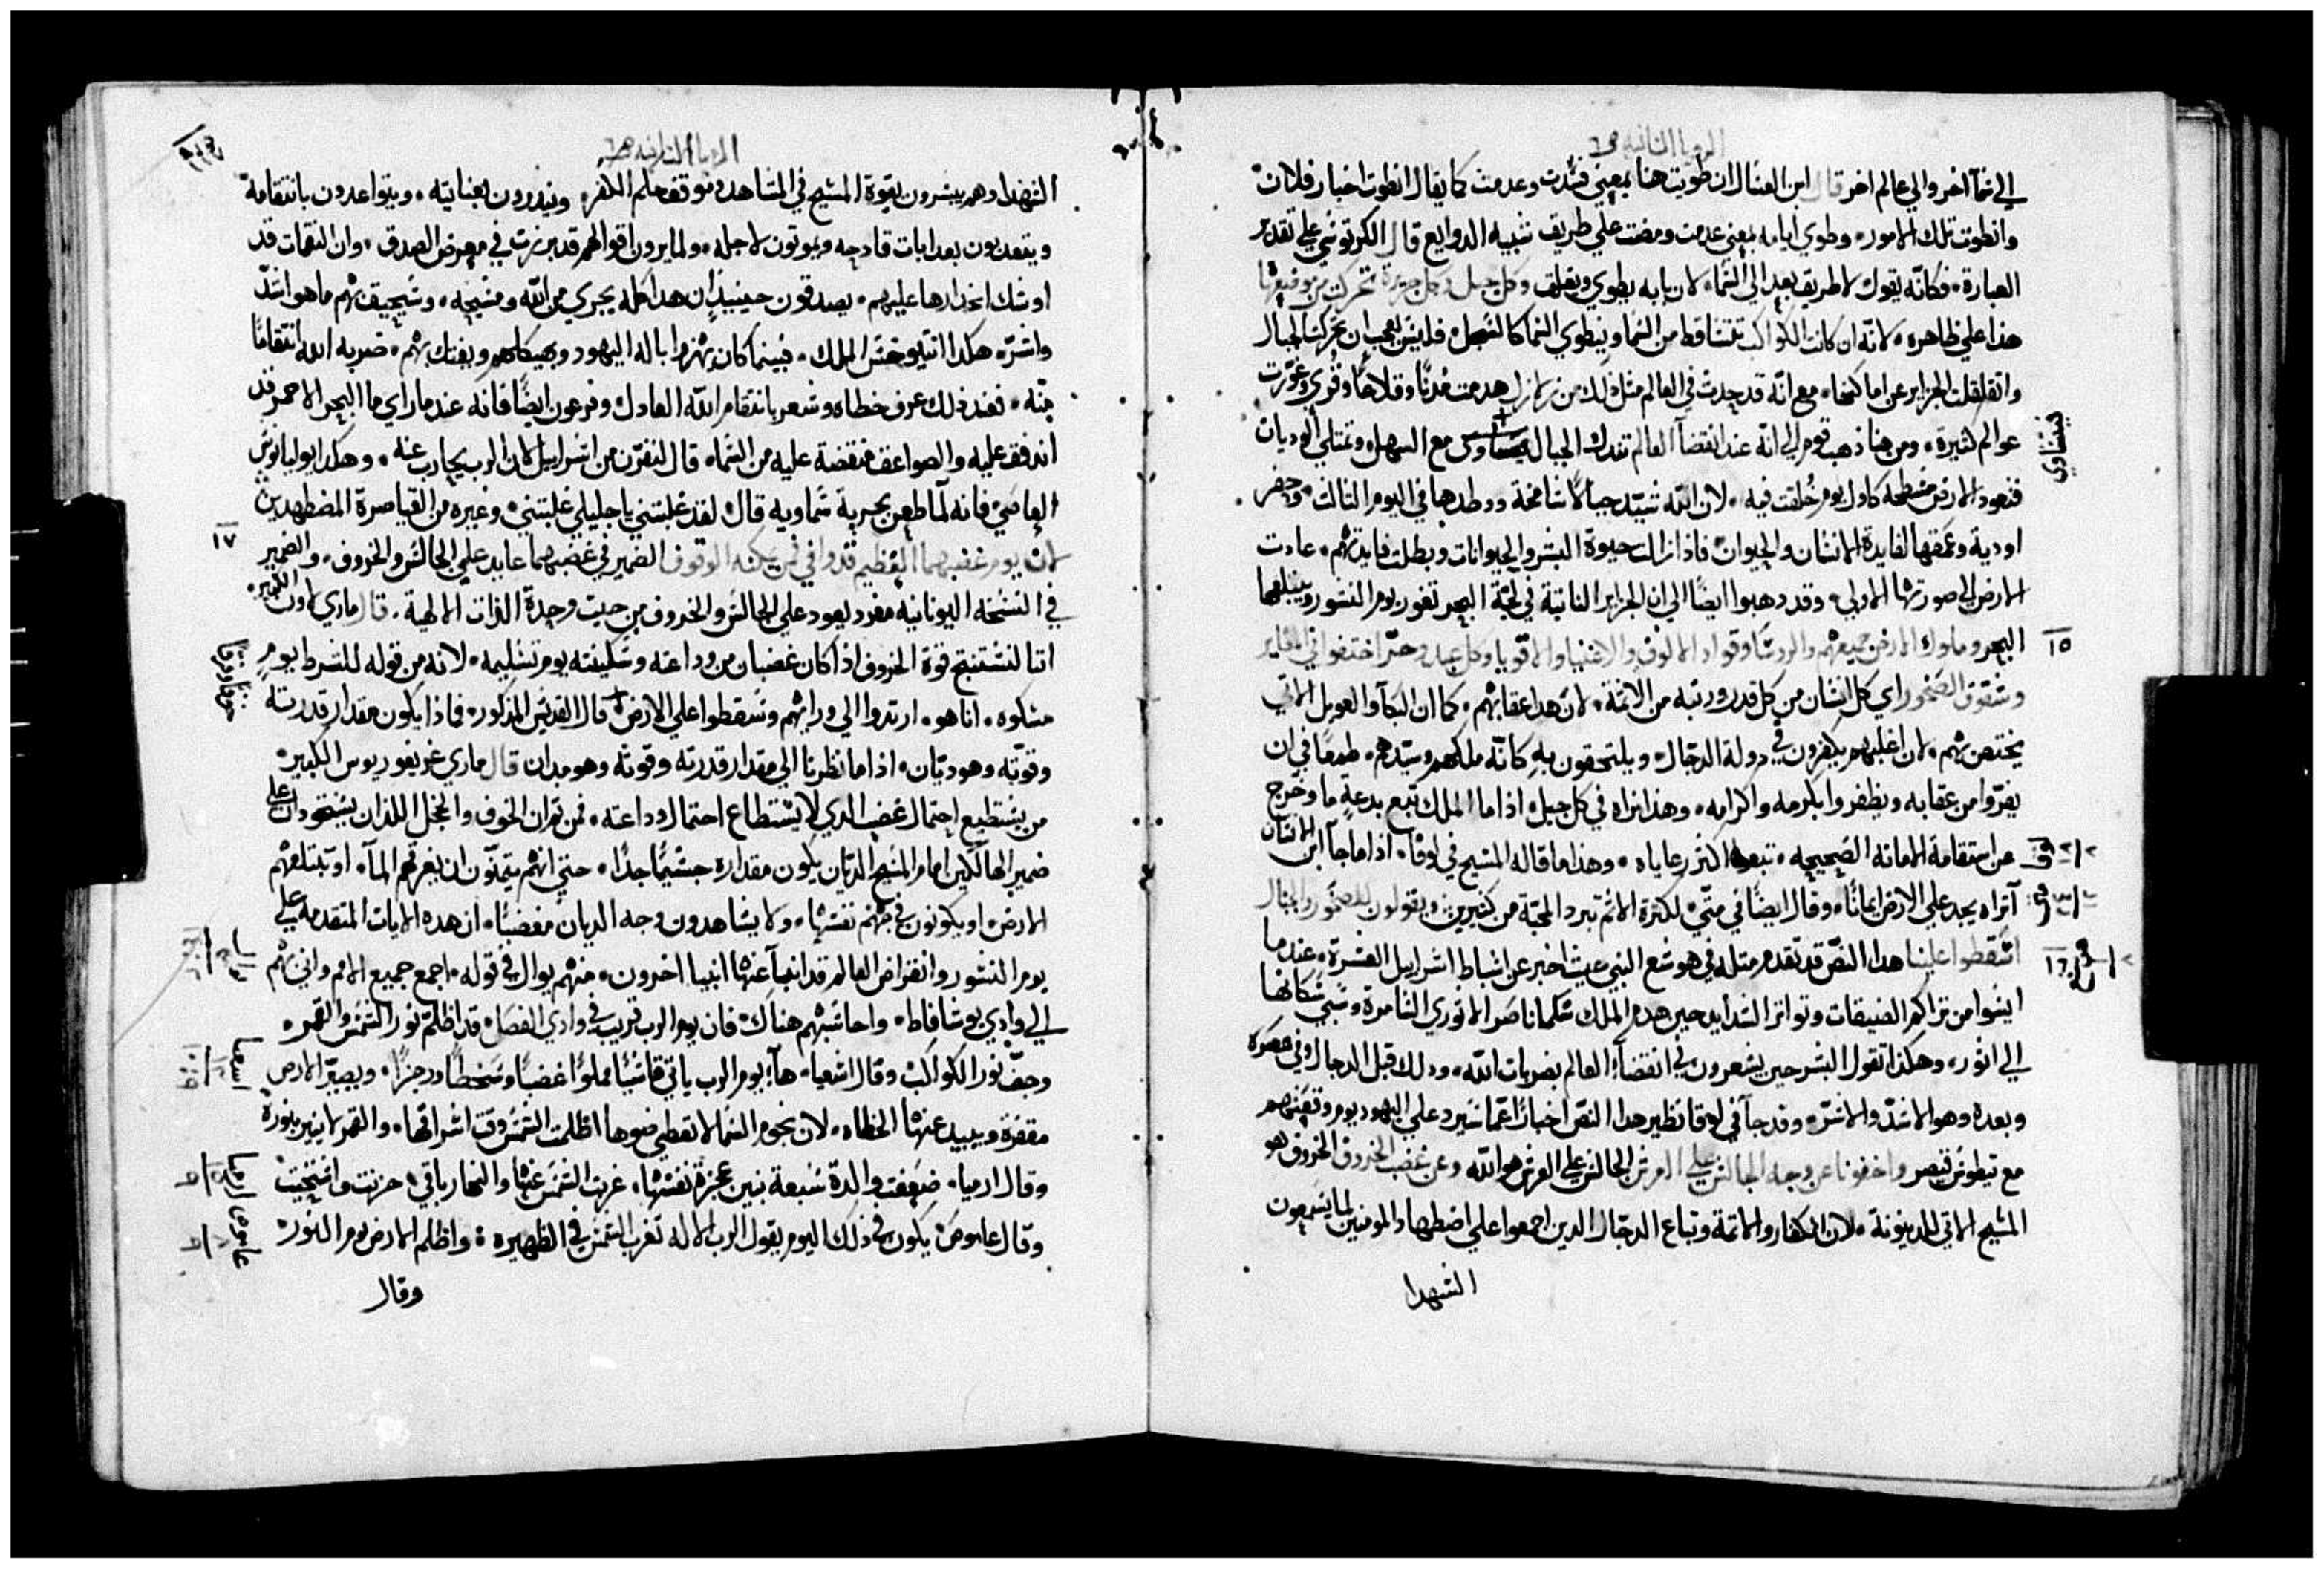 الرويا الثانيه
الي سمآ اخر والي عالم اخر قال ابن العسال ان طويت هنا بمعني فسدت وعدمت كما يقال انطوت اخبار فلان
وانطوت تلك الامور، وطوي ايامه بمعني عدمت ومضت علي طريق شبيه الدوايع قال الكرتوسي علي تقدير
العبارة، فكانّه يقول لا طريق بعد الي السّماء لان بابه يطوي ويغلق وكل جبل وكل جزيرة تحركت من موضعها
هذا علي ظاهره، لانّه ان كانت الكواكب تتساقط من السّما وينطوي السّما كالسّجل، فليس بعجب ان تحركت الجبال
واتقلقلت الجزاير عن اماكنها، مع انّه قد حدث في العالم مثل ذلك من زلازل هدمت مُدنًا وقلاعًا وقري وغوّرت
عوالم كثيرة، ومن هنا ذهب قوم الي انّه عند انقضآ العالم تندك الجبال مع السهل، وتمتلي الوديان
يتساوي
فتعود الارض مسطحة كاول يوم خُلقت فيه، لان اللّه شيّد جبالاً شامخة ووطدها في اليوم الثالث، وحفر
اودية وعمقها لفايدة الانسان والحيوان، فاذا زالت حيوة البشر والحيوانات وبطلت فايدتهم، عادت
الارض الي صورتها الاولي، وقد دهبوا ايضًا الي ان الجزاير النابتة في لجّة البحر تغور يوم النشور ويبتلعها
١٥
البحر وملوك الارض جميعهم والروسّا وقواد الالوف والاغنيا والاقويا وكل عبد وحرّ اختفوا في المغاير
وشقوق الصّخور اي كل انسان من كل قدر ورتبه من الاثمة، لان هدا عقابهم، كما ان البكآ والعويل الاتي
يختص بهم، لان اغلبهم يكفرون في دولة الدجّال، ويلتحقون به كانّه ملكهم وسيّدهم، طمعًا في ان
يفرّوا من عقابه ويظفروا بكرمه واكرامه، وهذا نراه في كل جيل، اذا ما الملك تبع بدعةٍ ما وخرج
عن استقامة الامانه الصّحيحه، تبعها اكثر رعاياه، وهذا ما قاله المسيح في لوقا، اذا ما جآ ابن الانسان
لوق
اتراه يجد علي الارض ايمانًا، وقال ايضًا في متّي، لكثرة الاثم تبرد المحبّة من كثيرين، ويقولون للصّخور والجبال
اسقطوا علينا هدا النصّ قد تقدم مثله في هوشع النبي حيث اخبر عن اسباط اسراييل العشرة، عندما
١٦
ايسُوا من تراكم الضيقات وتواتر الشدايد حين هدم الملك سلمانا صر الاتوري السّامرة وسَبي سُكانها
الي اتور، وهكذا تقول البشر حين يشعرون في انقضآ العالم بضربات اللّه، ودلك قبل الدجال وفي عصره
وبعده وهو الاشدّ والاشرّ، وقد جآ في لوقا نظير هدا النصّ اخبارًا عمّا سَيرد علي اليهود يوم وقعتهم
مع تيطوس قيصر واخفونا عن وجه الجالس علي العرش الجالس علي العرش هو اللّه وعن غضب الخروف الخروف هو
المسيح الاتي للدينونة، لان الكفار والاثمة وتباع الدجّال الدين اجمعوا علي اضطهاد المومنين لما يسمعون
الشهدا
الرويا الثانيه
الشهدا وهم يبشرون بقوة المسيح في المشاهد وموتقف حلم الكفر، وينذرون بعنايته، ويتواعدون بانتقامه
ويتعدبون بعدابات قادحه ويموتون لاجله، ولما يرون اقوالهم قد برزت في معرض الصدق، وان النقمات قد
اوشك انحدارها عليهم، يصدقون حينيدٍ ان هدا كله يجري من اللّه ومسيحه، وسَيحيق بهم ما هو اشدّ
واشرّ، هكدا انتيوخس الملك، فبينما كان يهزوا باله اليهود وبهيكلهم ويفتك بهم، ضربه الله انتقامًا
منه، فعند ذلك عرف خطاه وشعر بانتقام اللّه العادل، وفرعون ايضًا فانه عند ما راي ما البحر الاحمر قد
اندفق عليه والصواعق منقضة عليه من السّما، قال لنفرّن من اسراييل لان الرب يحارب عنه، وهكدا يوليانوس
العاصَي فانه لمّا طعن بحربة سَماويه قال، لقد غلبتني يا جليلي غلبتني، وغيره من القياصرة المضطهدين
١٧
لان يوم غضبهما العظيم قد وافي فمن يمكنه الوقوف الضمير في غضبهما عايد علي الجالس والخروف، والضمير
في النسّخه اليونانيه مفرد يعود علي الجالس والخروف من حيث وحدة الذات الالهية، قال ماري لاون الكبير
اننا لنستنتج قوة الخروف اذا كان غضبان من وداعته وسَكينته يوم تسليمه، لانه من قوله للشرط يوم
مسكوه، انا هو، ارتدوا الي ورايهم وسَقطوا علي الارض قال القديس المذكور، فماذا يكون مقدار قدرته
وقوّته وهو ديّان، اذا ما نظرنا الي مقدار قدرته وقوته وهو مدان قال ماري غريغوريوس الكبير
من يستطيع احتمال غضب الدي لا يُستطاع احتمال وداعته، فمن تري الخوف والخجل اللذان يستحوذان علي
ضمير الهالكين امام المسَيح الديّان يكون مقداره جسَيمًا جدًا، حتي انهم يتمنّون ان يغرقهم المآ، او تبتلعهم
الارض، او يكونون في جهنم نفسَها، ولا يشاهدون وجه الديان مغضبًا، ان هده الايات المتقدمه علي
يوم النشور وانقراض العالم قد انبأ عنها انبيا اخرون، منهم يوال في قوله، اجمع جميع الامم واتي بهم
يوال
الي وادي يوشافاط، واحاسَبهم هناك، فان يوم الرب قريب في وادي الفصَل، قد اظلم نور السّمس والقمر،
وجفّ نور الكواكب وقال اشعيا، هآ يوم الرب ياتي قاسَيًا مملوًا غضبًا وسَخطًا ورجزًا، ويصيّر الارض
اسعيا
مقفرة ويبيد عنها الخطاه، لان نجوم السّما لا تعطي ضوها اظلمت السّمس وقت اشراقها، والقمر لا ينير بنوره
وقال ارميا، ضعفت والدة سَبعة بنين عجزة نفسها، غربت الشمس عنها والنهار باقي، حزنت وافتخيت
ارميا
وقال عاموص، يكون في ذلك اليوم يقول الرب الاله تغرب الشمس في الظهيره، واظلم الارض يوم النور
عاموص
وقال